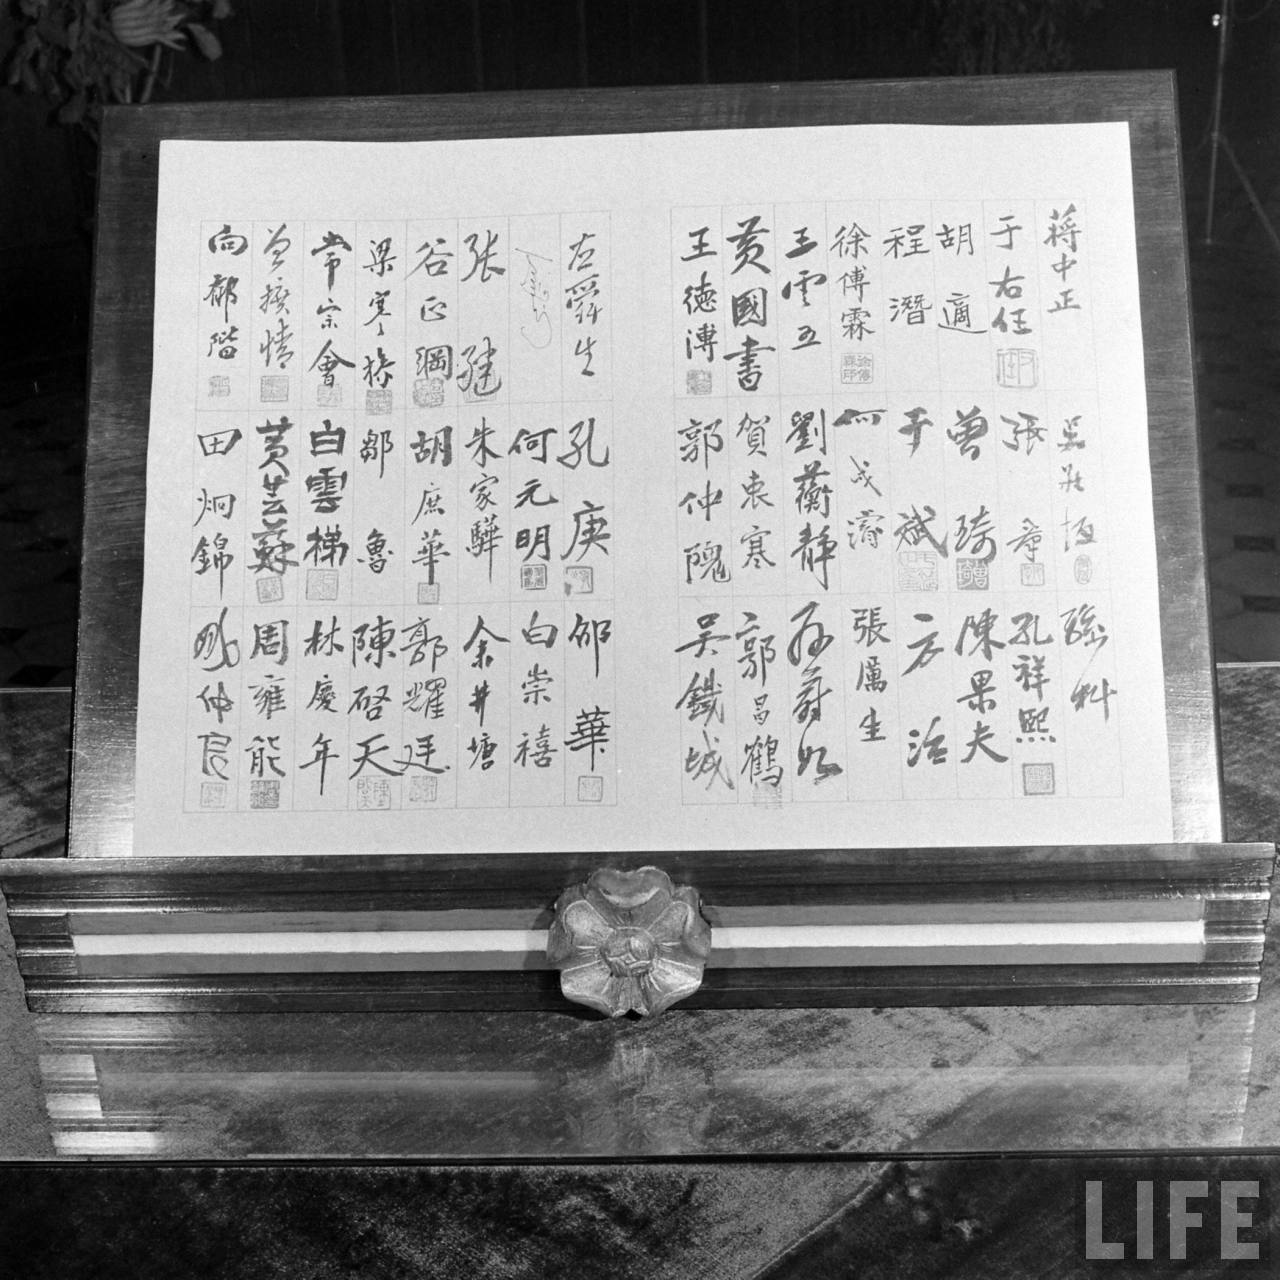 蔣中正 吳敬恆 孫科
于右任 張羣 孔祥熙
胡適 曾琦 陳果夫
程潛 于斌 方治
徐傅霖 何成濬 張厲生
王雲五 劉蘅靜 孫蔚如
黃國書 賀衷寒 郭昌鶴
王德溥 郭仲隗 吳鐵城
左舜生 孔庚 邵華
何元明 白崇禧
張繼 朱家驊 余井塘
谷正綱 胡庶華 郭耀廷
梁寒操 鄒魯 陳啓天
常宗會 白雲梯 林慶年
曾擴情 黃芸蘇 周雍能
向郁階 田炯錦
LIFE